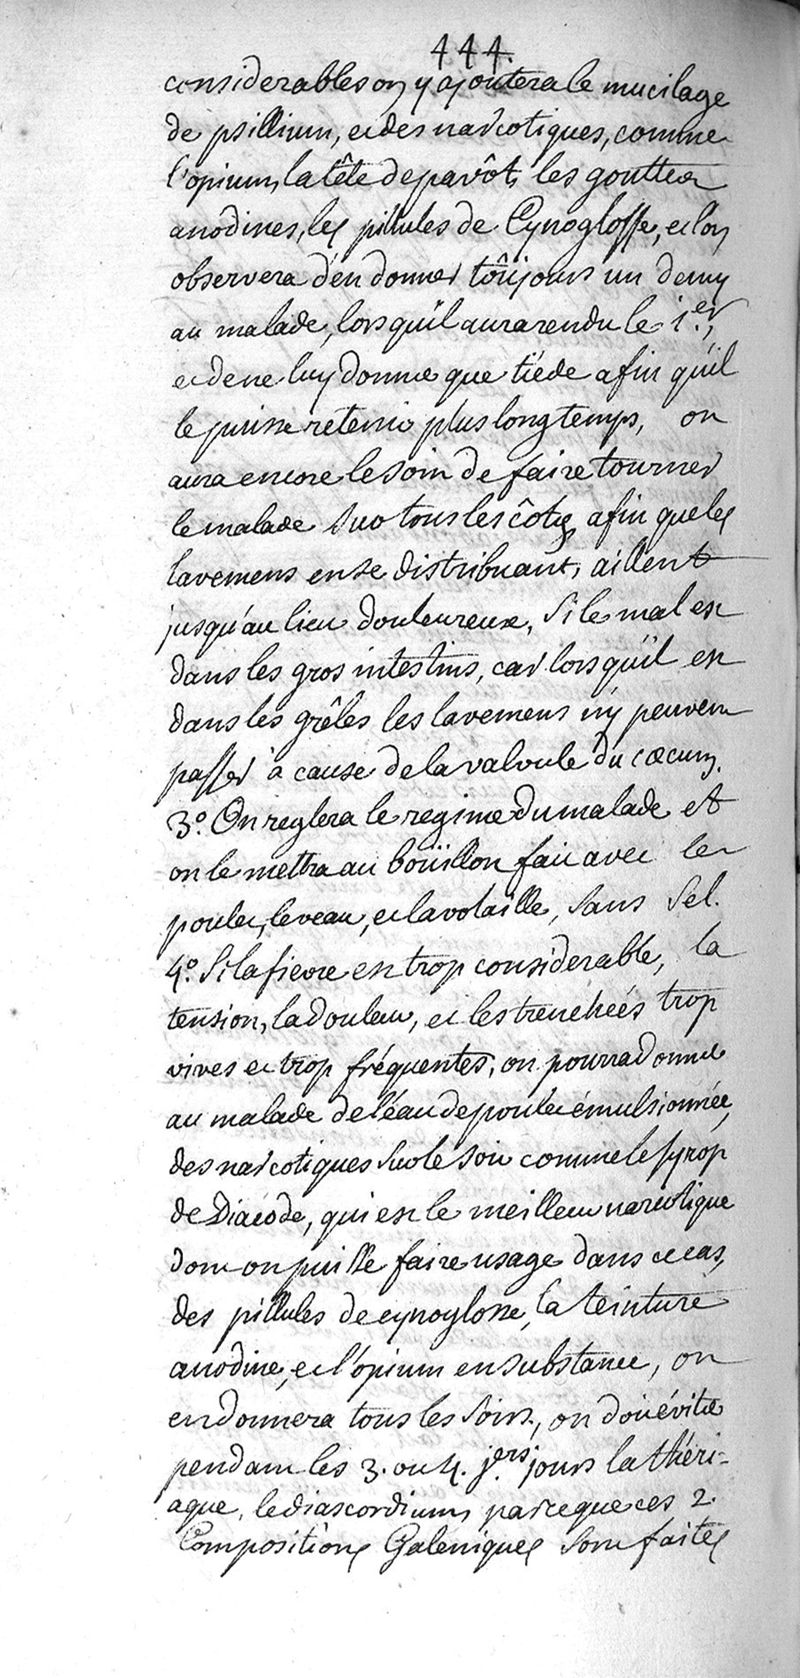 444.
considerables on y ajoutera le mucilage
de psillium, et des narcotiques, comme
l'opium, la tête de pavôt, les gouttes
anodines, les pillules de Cynoglosse, et l'on
observera d'en donner toûjours un demy
au malade, lors qu'il aura rendu le 1.er,
et de ne luy donner que tiéde afin qu'il
le puisse retenir plus longtemps, on
aura encore le soin de faire tourner
le malade sur tous les côtés afin que les
lavemens en se distribuant, aillent
jusqu'au lieu douleureux, si le mal est
dans les gros intestins, car lorsqu'il est
dans les grêles les lavemens n'y peuvent
passer à cause de la valvule du cœcum.
3.° On reglera le regime du malade et
on le mettra au boüillon fait avec le
poulet, le veau, et la volaille, sans sel.
4.° Si la fievre est trop considerable, la
tension, la douleur, et les trenchées trop
vives et trop fréquentes, on pourra donner
au malade de l'éau de poulet émulsionnée,
des narcotiques sur le soir comme le syrop
de Diacode, qui est le meilleur narcotique
dont on puisse faire usage dans ce cas,
des pillules de cynoglosse, la teinture
anodine, et l'opium en substance, on
en donnera tous les soirs, on doit éviter
pendant les 3. ou 4. p.ers jours la théri-
aque, le diascordium, parce que ces 2.
Compositions Galeniques sont faites